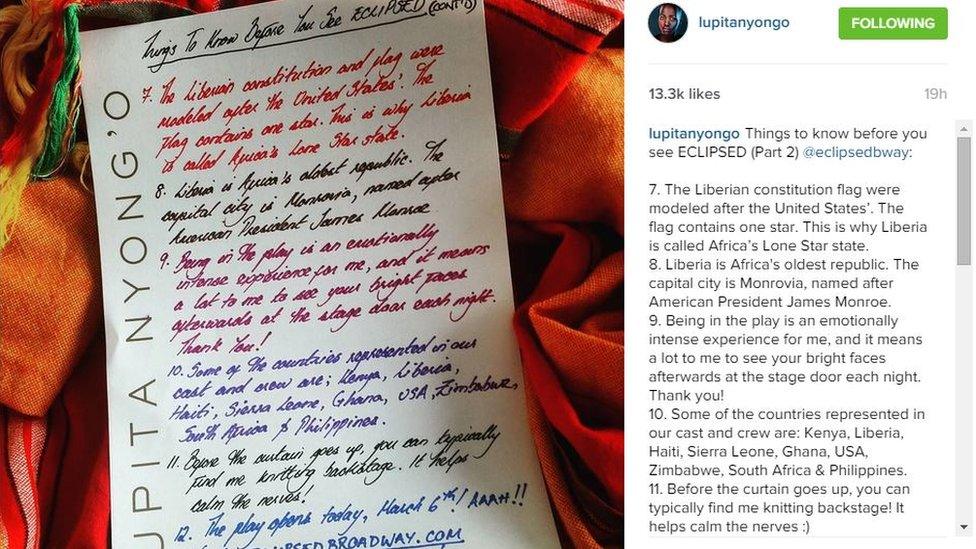 Things To Know Before You See ECLIPSED (CONT'D)
7. The Liberian constitution and flag were
modeled after the United States'. The
flag contains one star. This is why Liberia
is called Africa's Lone Star state.
8. Liberia is Africa's oldest republic. The
capital city is Monrovia, named after
American President James Monroe
9. Being in the play is an emotionally
intense experience for me, and it means
a lot to me to see your bright faces
afterwards at the stage door each night.
Thank You!
10. Some of the countries represented in our
cast and crew are; Kenya, Liberia,
Haiti, Sierra Leone, Ghana, USA, Zimbabwe,
South Africa & Philippines.
11. Before the curtain goes up, you can typically
find me knitting backstage. It helps
calm the nerves!
12. The play opens today, March 6th! AAAH!!
ECLIPSEDBROADWAY.COM
UPITA NYONG'O
lupitanyongo
FOLLOWING
13.3k likes
19h
lupitanyongo Things to know before you
see ECLIPSED (Part 2) @eclipsedbway:
7. The Liberian constitution flag were
modeled after the United States’. The
flag contains one star. This is why Liberia
is called Africa’s Lone Star state.
8. Liberia is Africa's oldest republic. The
capital city is Monrovia, named after
American President James Monroe.
9. Being in the play is an emotionally
intense experience for me, and it means
a lot to me to see your bright faces
afterwards at the stage door each night.
Thank you!
10. Some of the countries represented in
our cast and crew are: Kenya, Liberia,
Haiti, Sierra Leone, Ghana, USA,
Zimbabwe, South Africa & Philippines.
11. Before the curtain goes up, you can
typically find me knitting backstage! It
helps calm the nerves :)